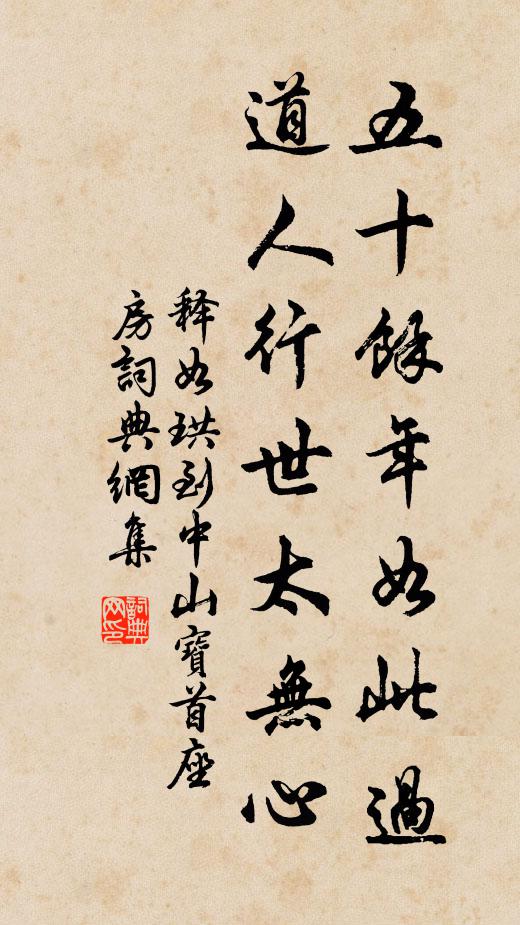 五十餘年如此過
道人行世太無心
释如珙到中山寶首座
房詞典網集
詞典网印